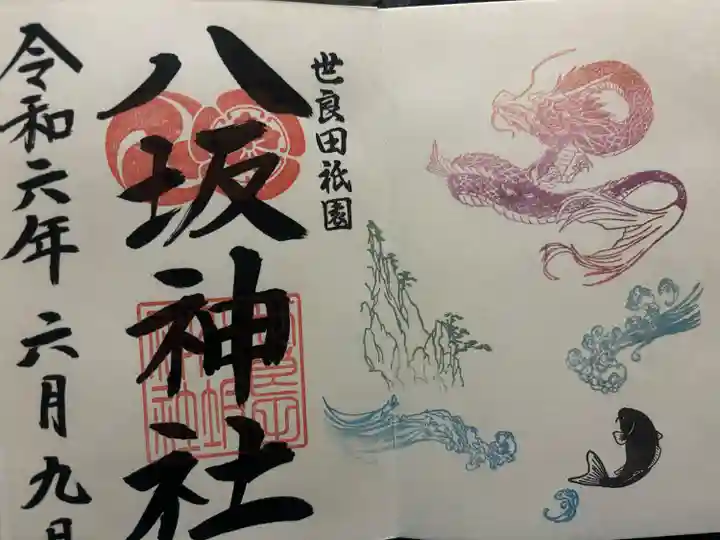 世良田祇園
八坂神社
令和六年 六月 九日